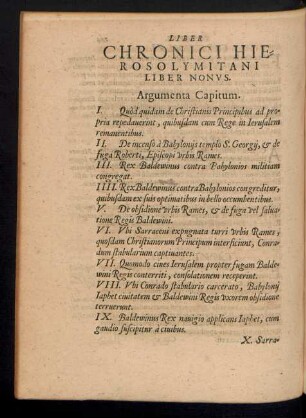 LIBER
CHRONICI HIE-
ROSOLYMITANI
LIBER NONVS.
Argumenta Capitum.
I. Quòd quidam de Christianis Principibus ad pro-
pria repedauerint, quibusdam cum Rege in Ierusalem
remanentibus.
II. De incenso à Babylonijs templo S. Georgij, & de
fuga Roberti, Episcopi vrbis Rames.
III. Rex Baldewinus contra Babylonios militiam
congregat.
IIII. Rex Baldewinus contra Babylonios congreditur,
quibusdam ex suis optimatibus in bello occumbentibus.
V. De obsidione vrbis Rames, & de fuga vel saluatione
Regis Baldewini.
VI. Vbi Sarraceni expugnata turri vrbis Rames,
quosdam Christianorum Principum interficiunt, Conra-
dum stabularium captiuantes.
VII. Quomodo ciues Ierusalem propter fugam Balde-
wini Regis conterriti, consolationem receperunt.
VIII. Vbi Conrado stabulario carcerato, Babylonij
Iaphet ciuitatem & Baldewini Regis vxorem obsidione
terruerunt.
IX. Baldewinus Rex nauigio applicans Iaphet, cum
gaudio suscipitur à ciuibus.
X. Sarra-